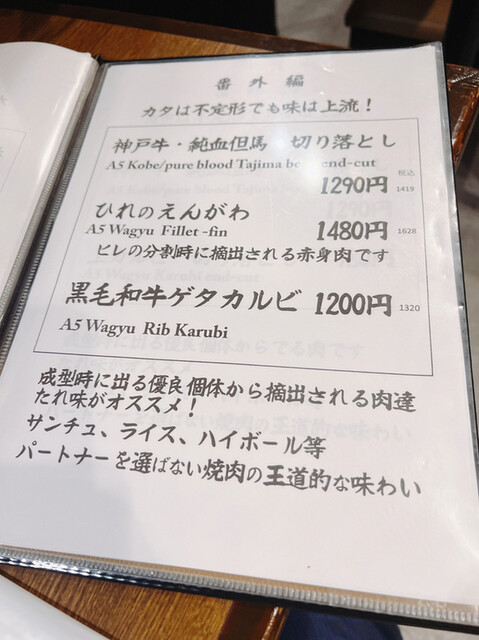 番外編
カタは不定形でも味は上流！
神戸牛・純血但馬 切り落とし
A5 Kobe/pure blood Tajima beef end-cut
税込
1290円 1419
ひれのえんがわ
A5 Wagyu Fillet -fin
1480円 1628
ヒレの分割時に摘出される赤身肉です
黒毛和牛ゲタカルビ 1200円 1320
A5 Wagyu Rib Karubi
成型時に出る優良個体から摘出される肉達
たれ味がオススメ！
サンチュ、ライス、ハイボール等
パートナーを選ばない焼肉の王道的な味わい